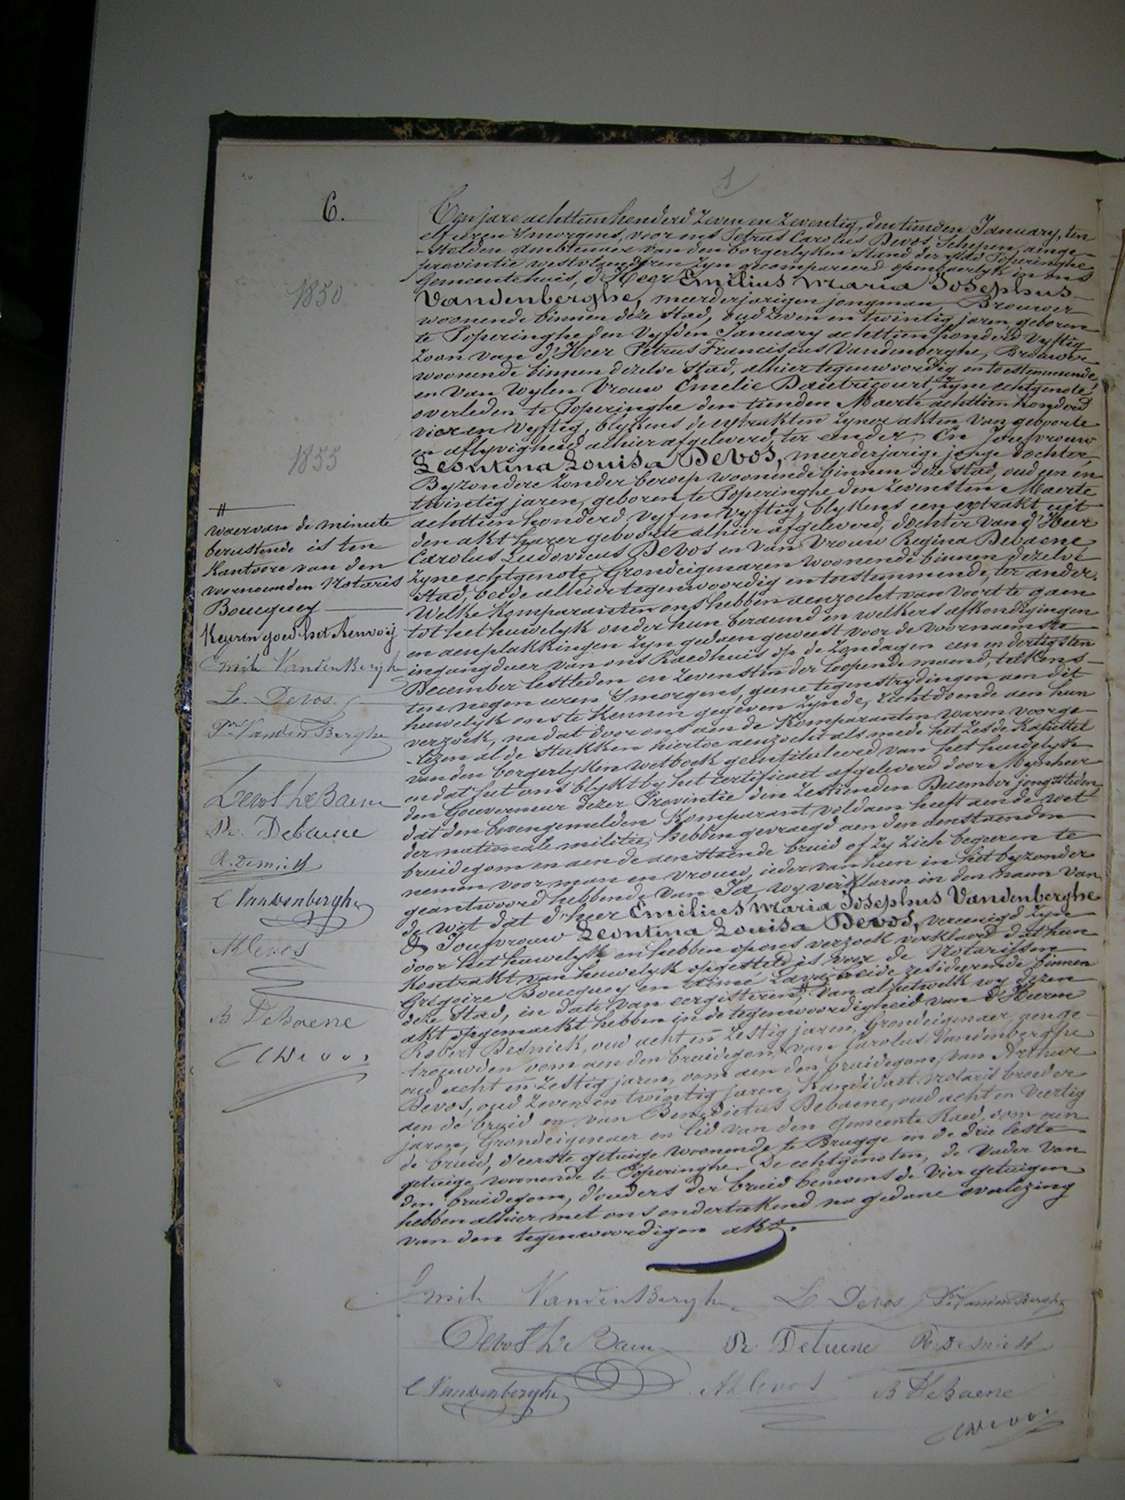 6.
1850
1855
Ten jare achttien honderd zeven en zeventig, den tienden January, ten
elf uren 's morgens, voor ons Petrus Carolus Devos, Schepen, ange-
-stelden ambtenaer van den borgerlyken stand der stad Poperinghe
provintie westvlaenderen zyn gecompareerd openbaerlyk in ons
Gemeentehuis, d'Heer Emilius Maria Josephus
Vandenberghe, meerderjarigen jongman Brouwer
woonende binnen deze stad, oud zeven en twintig jaren geboren
te Poperinghe den vyfden January achttien honderd vyftig
zoon van d'Heer Petrus Franciscus Vandenberghe, Brouwer
woonende binnen dezelve stad, alhier tegenwoordig en toestemmende,
en van wylen Vrouw Emelie Dautricourt, zyne echtgenote,
overleden te Poperinghe den tienden Maerte achttien honderd
vier en vyftig, blykens de extrakten zyner akten van geboorte
en aflyvigheid alhier afgeleverd, ter eender, En Joufvrouw
Leontina Louisa Devos, meerderjarige jonge dochter,
Byzondere zonder beroep woonende binnen deze stad, oud een en
twintig jaren, geboren te Poperinghe den zevensten Maerte
achttien honderd vyf en vyftig, blykens een extrakt uit
den akt harer geboorte alhier afgeleverd, dochter van d'Heer
Carolus Ludovicus Devos en van Vrouw Regina Debaene
zyne echtgenote, Grondeigenaren woonende binnen dezelve
stad, beide alhier tegenwoordig en toestemmende, ter ander.
Welke komparanten ons hebben aenzocht van voort te gaen
tot het huwelyk onder hun beraemd en welkers afkondigingen
en aenplakkingen zyn gedaen geweest voor de voornaemste
ingangdeur van ons Raedhuis op de zondagen een en dertigsten
December lestleden en zevensten der loopende maend, telkens
ten negen uren 's morgens, geene tegenstrydingen aen dit
huwelyk ons te kennen gegeven zynde, recht doende aen hun
verzoek, na dat door ons aen de komparanten waren voorge-
-lezen al de stukken hiertoe aenzocht als mede het zesde Kapittel
van den borgerlyken wetboek geintituleerd van het huwelyk
en dat het ons blykt by het certificaet afgeleverd door Mynheer
den Gouverneur dezer Provintie den zestienden December jongstleden
dat den bovengemelden komparant voldaen heeft aen de wet
der nationale militie, hebben gevraegd aen den aenstaenden
bruidegom en aen de aenstaende bruid of zy zich begeren te
nemen voor man en vrouw, ieder van hun in het byzonder
geantwoord hebbende van Ja, wy verklaren in den naem van
de wet dat d'heer Emilius Maria Josephus Vandenberghe
& Joufvrouw Leontina Louisa Devos, vereenigd zyn
door het huwelyk en hebben op ons verzoek verklaerd dat hun
kontrakt van huwelyk opgesteld is voor de Notarissen
Grégoire Boucquey en beide residerende binnen
deze stad, in date van eergisteren # Van al hetwelk wy dezen
akt opgemaekt hebben in de tegenwoordigheid van d'Heeren
Robert Desniek, oud acht en zestig jaren, Grondeigenaer, aenge-
trouwden oom aen den bruidegom, van Carolus Vandenberghe
oud acht en zestig jaren, oom aen den bruidegom, van Arthur
Devos, oud zeven en twintig jaren, kandidaet notaris broeder
aen de bruid en van Benedictus Debaene, oud acht en veertig
jaren, Grondeigenaer en lid van den Gemeente Raed, oom aen
de bruid, d'eerste getuige woonende te Brugge en de drie leste
getuige woonende te Poperinghe. De echtgenoten, de vader van
den bruidegom, d'ouders der bruid benevens de vier getuigen
hebben alhier met ons ondertekend na gedane overlezing
van den tegenwoordigen akt.
#
waervan de minute
berustende is ten
Kantoore van den
voornoemden Notaris
Boucquey
Keuren goed het Renvooij
Emile VandenBerghe
Le. Devos
Pre VandenBerghe
Devos Le Baene
Re. Debaene
R. Desniek
C Vandenberghe
A Devos
B DeBaene
C Devos
Emile VandenBerghe L. Devos Pre VandenBerghe
Devos De Baene Re. Debaene R. Desniek
C Vandenberghe A Devos B DeBaene
C Devos